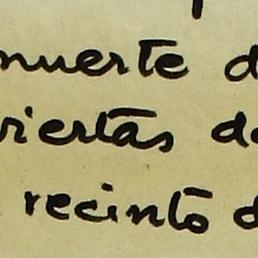 muerte d
viertas de
recinto d